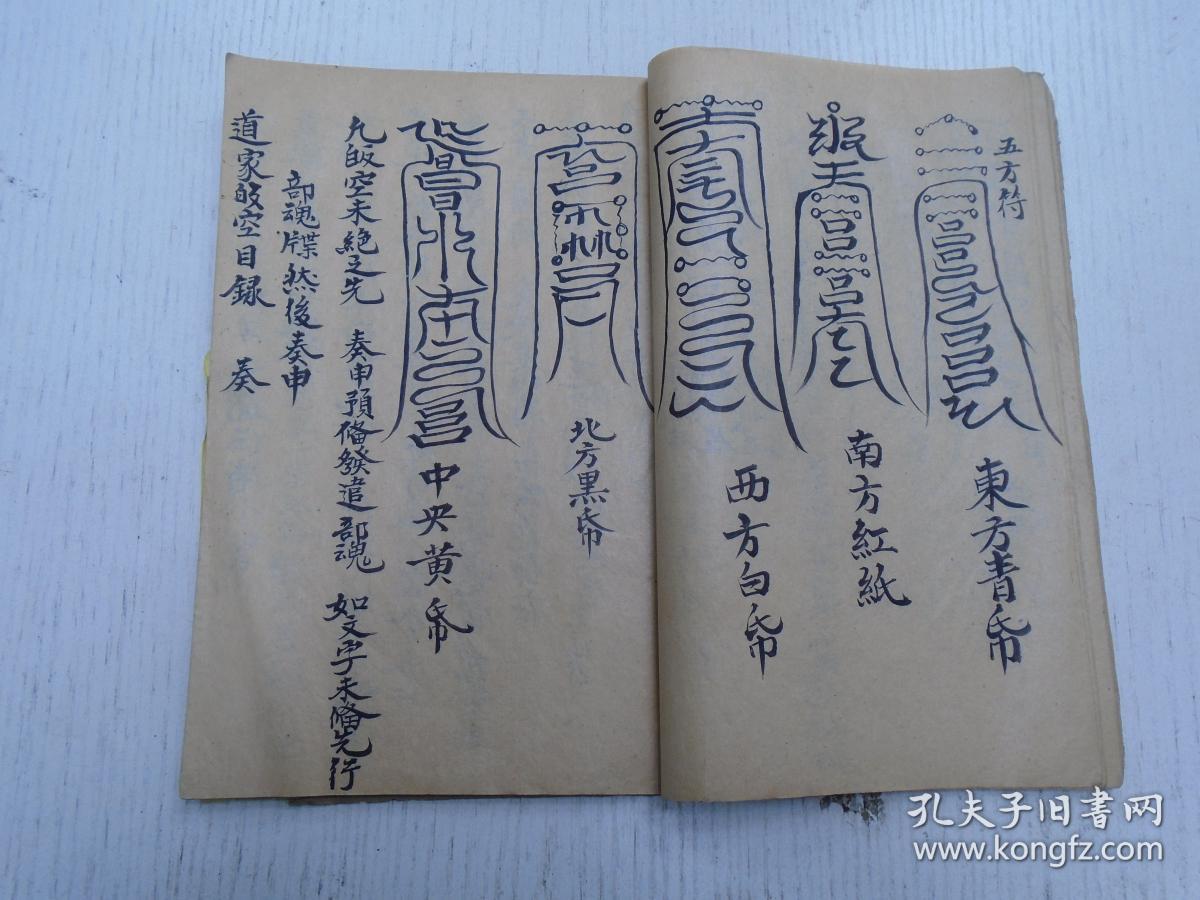 五方符
東方青帋
南方紅紙
西方白帋
北方黑帋
中央黄帋
凡皈空未絶之先 奏申預俻發遣部魂 如文字未俻先行
部魂牒然後奏申
道家皈空目録 奏
孔夫子旧书网
www.kongfz.com